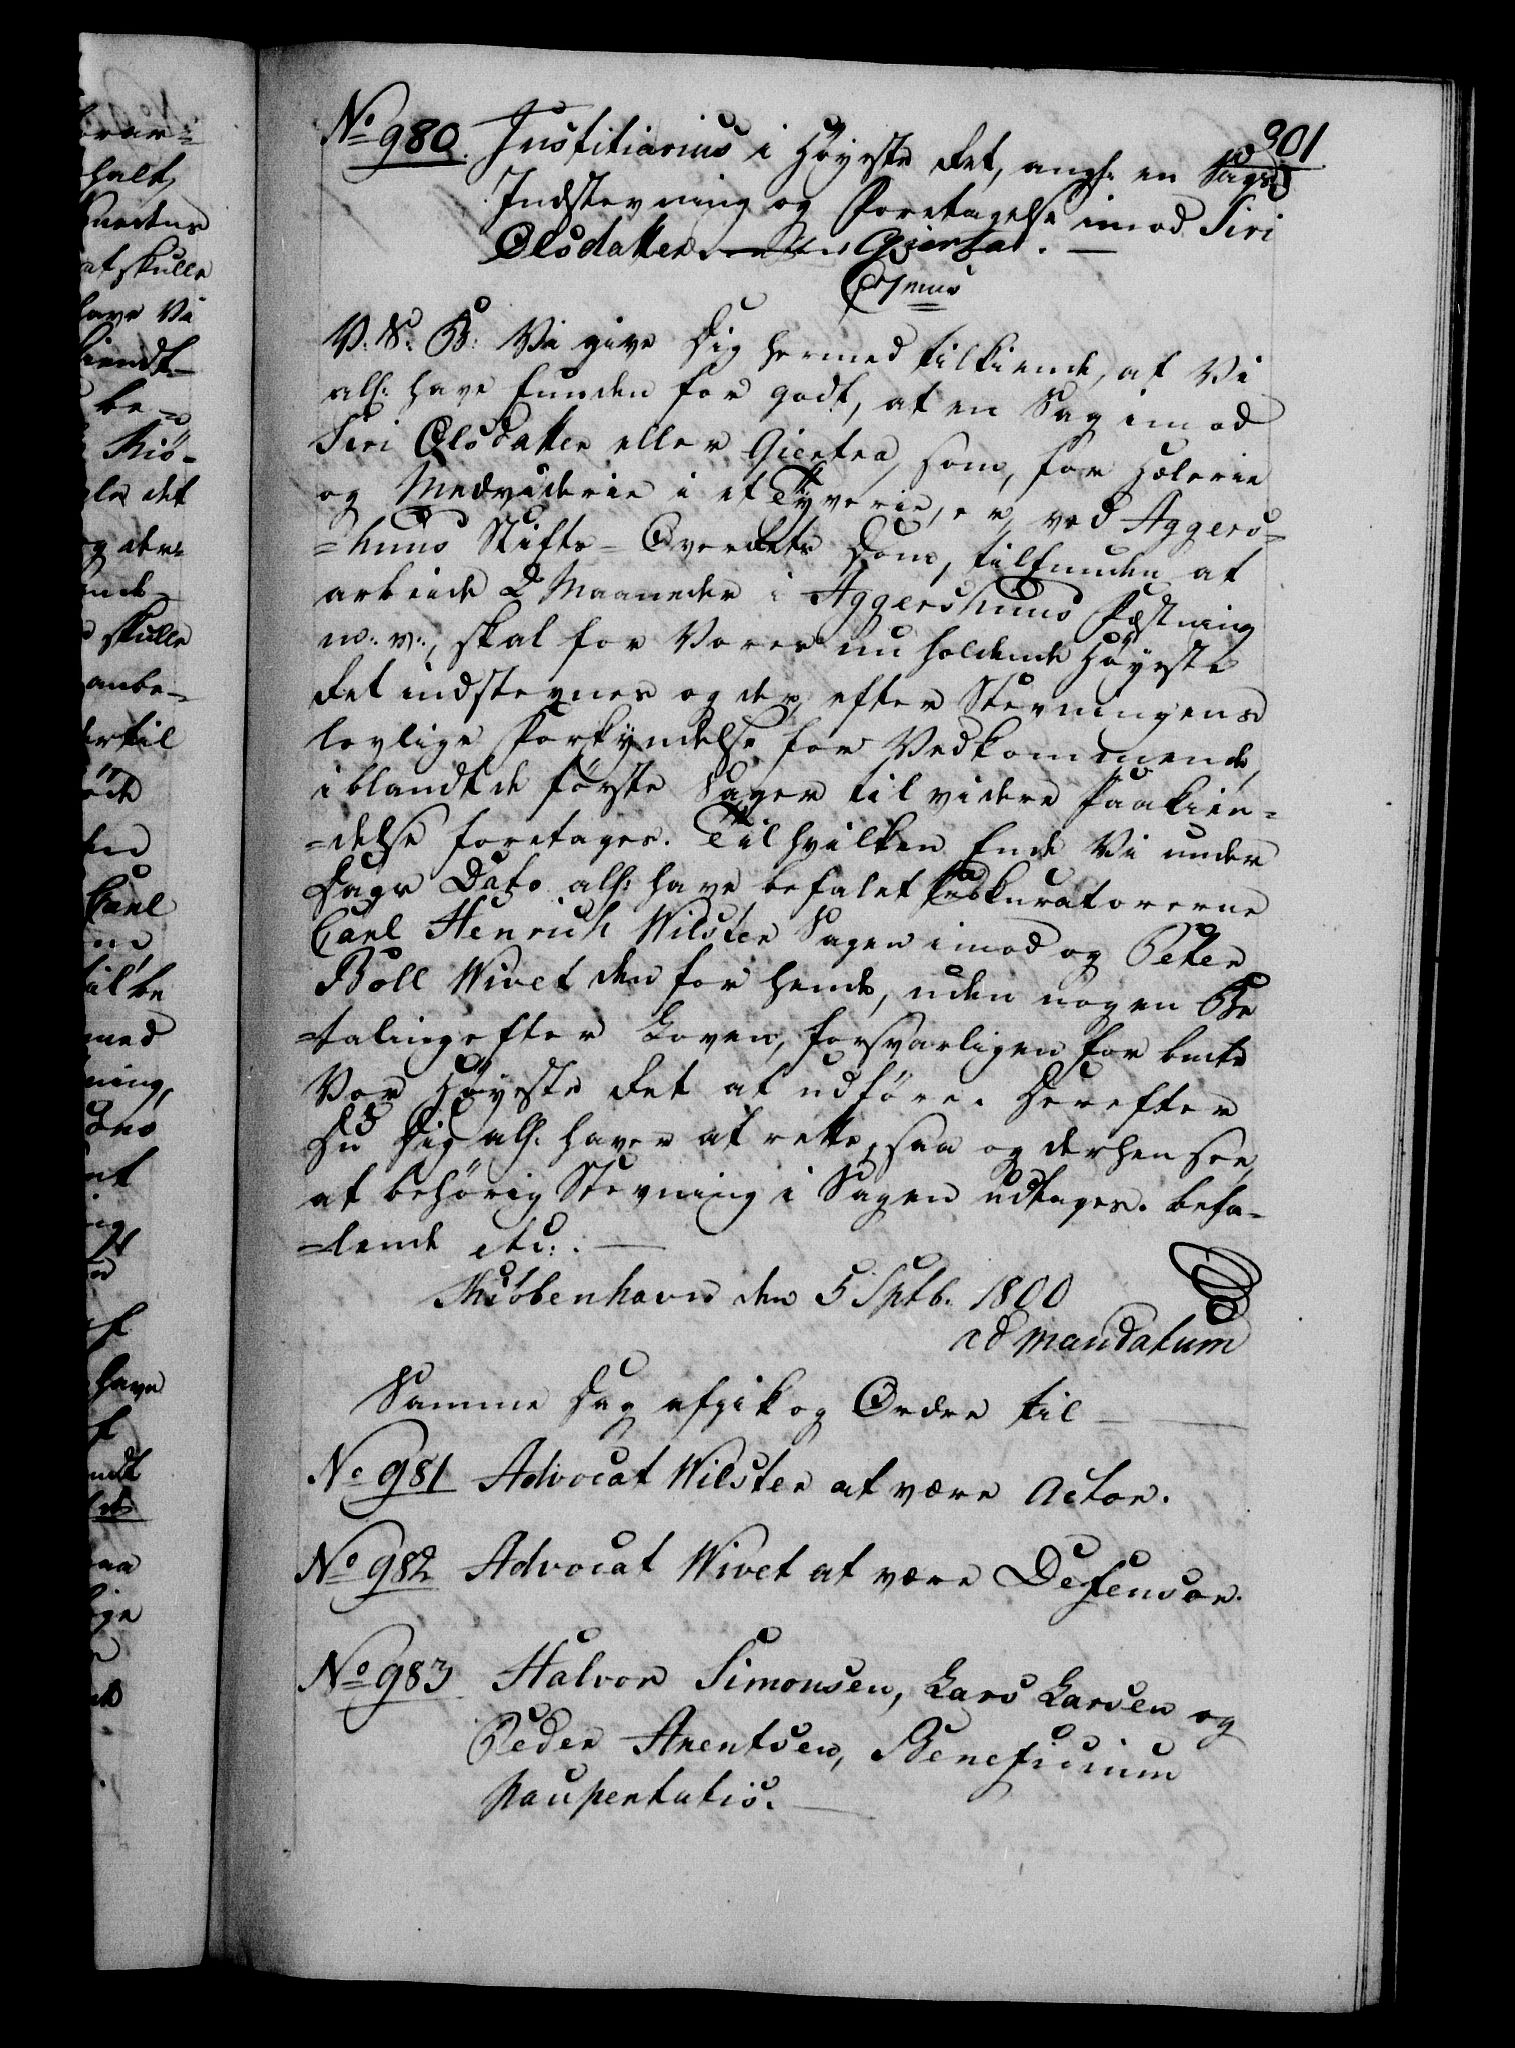 301
No 980. Justitiarius i Höyeste Ret, angl. en Sags
Indstevning og Foretagelse imod Siri
Olsdatter eller Giertra.
C 7 mus
V: S: G: Vi give Dig hermed tilkiende, at Vi
all: have funden for godt, at en Sag imod
Siri Olsdatter eller Giertra, som, for Hælerie
og Medviderie i et Tyverie, er, ved Aggers-
=huus Stifts-Overrets Dom, tilfunden at
arbeide 2 Maaneder i Aggershuus Fæstning
m: v:, skal for Vores nu holdende Höyeste
Ret indstevnes og der, efter Stevningens
lovlige Forkyndelse for Vedkommende,
iblandt de förste Sager til videre Paakien-
=delse foretages. Til hvilken Ende Vi under
Dags Dato all: have befalet Prokuratorerne
Carl Henrich Wilster Sagen imod og Peter
Boll Wivet den for hende, uden nogen Be
=taling efter Loven, forsvarligen for bemte
Vor Höyeste Ret at udföre. Derefter
Du Dig all. haver at rette, saa og derhen see,
at behörig Stevning i Sagen udtages. Befa-
=lende etc:.
Kiöbenhavn den 5 Septb. 1800
ad mandatum
Samme Dag afgik og Ordre til
No 981 Advocat Wilster at være Actor.
No 982 Advocat Wivet at være Defensor.
No 983 Halvor Simonsen, Lars Larsen og
Peder Arentsen, Beneficium
paupertatis.